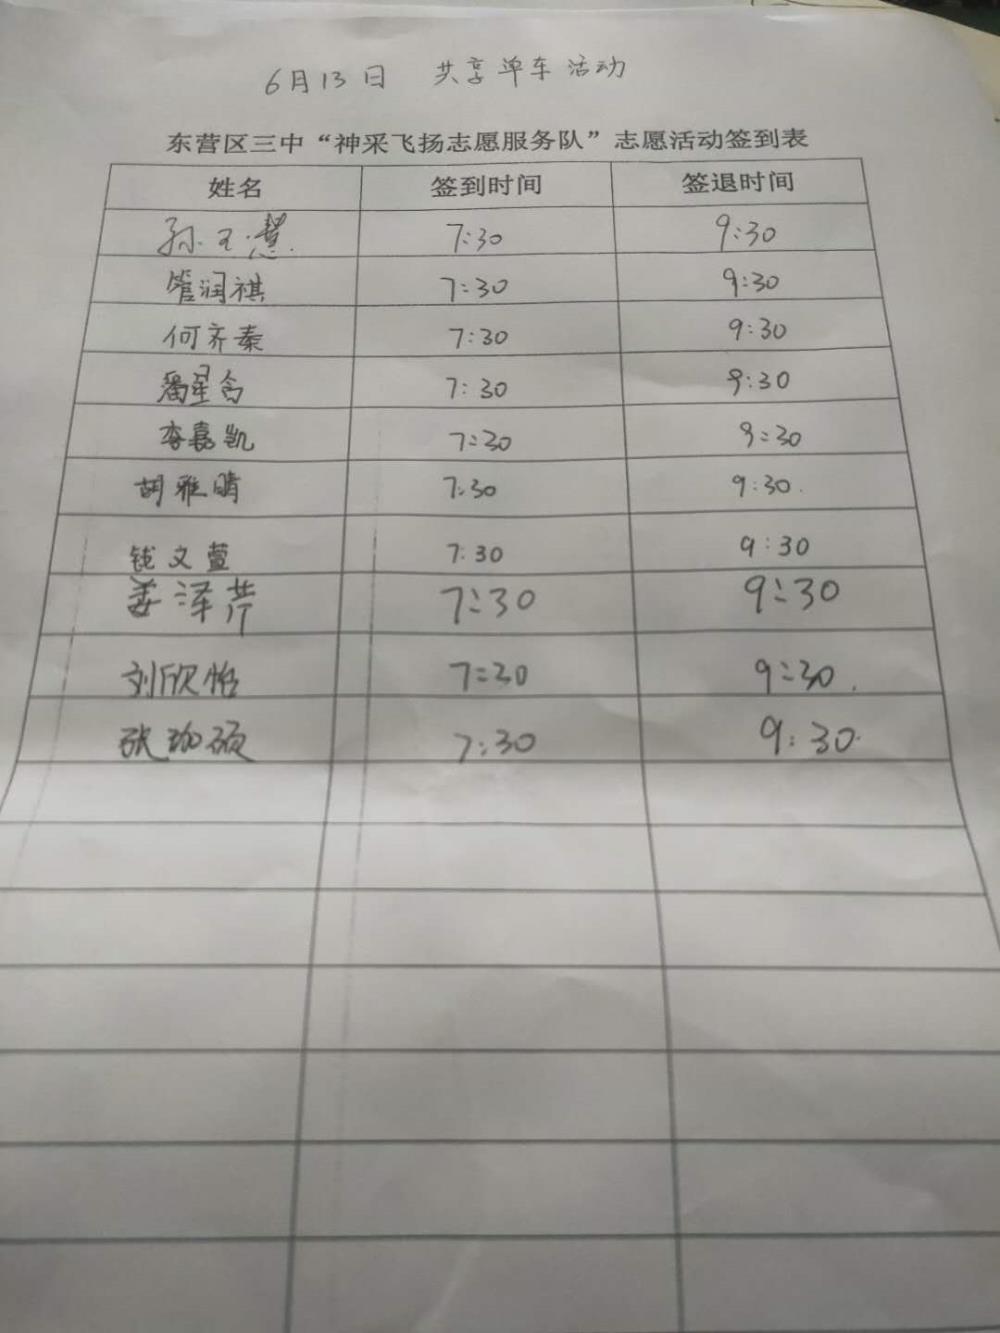 6月13日 共享单车活动
东营区三中“神采飞扬志愿服务队”志愿活动签到表
姓名 签到时间 签退时间
孙玉慧 7:30 9:30
管润祺 7:30 9:30
何齐秦 7:30 9:30
潘星含 7:30 9:30
李嘉凯 7:30 9:30
胡雅晴 7:30 9:30
钱文萱 7:30 9:30
姜泽芹 7:30 9:30
刘欣怡 7:30 9:30
张珈硕 7:30 9:30